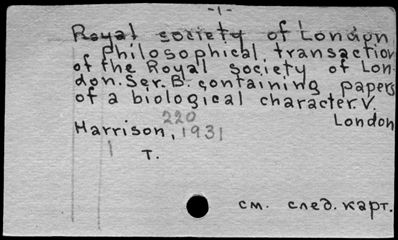 -1-
Royal society of London.
Philosophical transaction
of the Royal society of Lon-
don. Ser. B. containing papers
of a biological character. V.
220
London
Harrison, 1931
1 T.
см. след. карт.